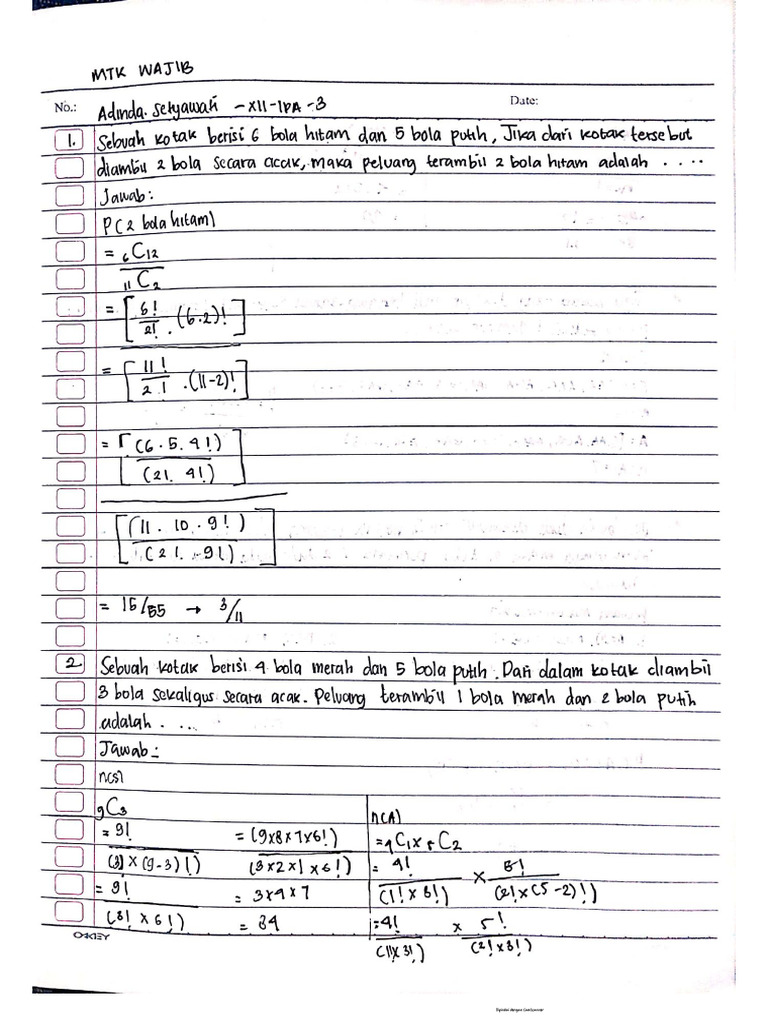 MTK WAJIB
No.: Adinda. Setyawati -XII-IPA-3 Date:
1. Sebuah kotak berisi 6 bola hitam dan 5 bola putih, Jika dari kotak tersebut
diambil 2 bola secara acak, maka peluang terambil 2 bola hitam adalah ....
Jawab:
P(2 bola hitam)
= 6C12
11C2
= [ 6!
2! . (6.2)! ]
= [ 11!
2! . (11-2)! ]
= [ (6.5.4!)
(2!. 4!) ]
[ (11. 10. 9!)
(2!. 9!) ]
= 15/55 → 3/11
2 Sebuah kotak berisi 4 bola merah dan 5 bola putih. Dari dalam kotak diambil
3 bola sekaligus secara acak. Peluang terambil 1 bola merah dan 2 bola putih
adalah ....
Jawab:
n(s)
9C3 n(A)
= 9! = (9x8x7x6!) = 4C1 x 5C2
(3! x (9-3)!) (3x2x1x6!) = 4! x 5!
= 9! = 3x4x7 (1! x 3!) (2! x (5-2)!)
(3! x 6!) = 84 = 4! x 5!
OKEY (1! x 3!) (2! x 3!)
Dipindai dengan CamScanner